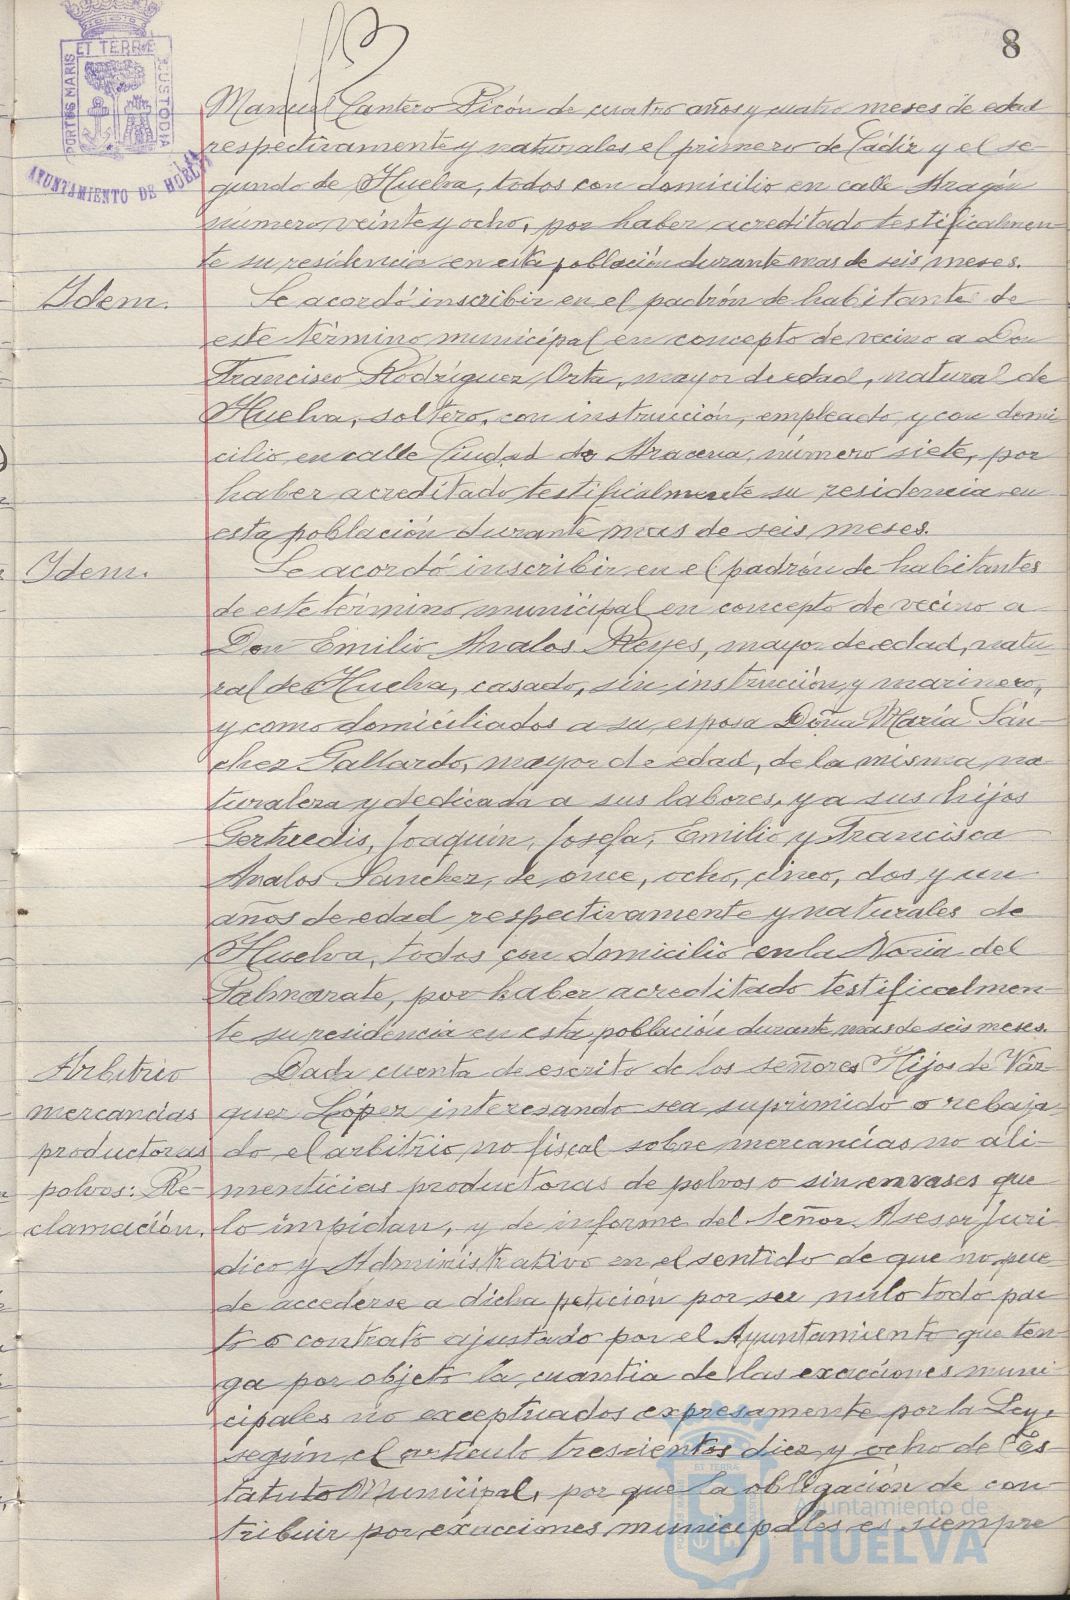 8
PORTUS MARIS ET TERRÆ CUSTODIA
AYUNTAMIENTO DE HUELVA
Manuel Cantero Picón de cuatro años y cuatro meses de edad
respectivamente y naturales el primero de Cádiz y el se-
gundo de Huelva, todos con domicilio en calle Aragón
número veinte y ocho, por haber acreditado testificalmen-
te su residencia en esta población durante mas de seis meses.
Idem.
Se acordó inscribir en el padrón de habitantes de
este término municipal en concepto de vecino a Don
Francisco Rodríguez Orta, mayor de edad, natural de
Huelva, soltero, con instrucción, empleado, y con domi
cilio en calle Ciudad de Aracena, número siete, por
haber acreditado testificialmente su residencia en
esta población durante mas de seis meses.
Idem.
Se acordó inscribir en el padrón de habitantes
de este término municipal en concepto de vecino a
Don Emilio Avalos Reyes, mayor de edad, natu-
ral de Huelva, casado, sin instrucción y marinero,
y como domiciliados a su esposa Doña María Sán-
chez Gallardo, mayor de edad, de la misma na
turaleza y dedicada a sus labores, y a sus hijos
Gertrudis, Joaquín, Josefa, Emilio y Francisca
Avalos Sanchez, de once, ocho, cinco, dos y un
años de edad respectivamente y naturales de
Huelva, todos con domicilio en la Noria del
Palmarate, por haber acreditado testificalmen-
te su residencia en esta población durante mas de seis meses.
Arbitrio
mercancías
productoras
polvos: Re-
clamación.
Dada cuenta de escrito de los señores Hijos de Váz-
quez López interesando sea suprimido o rebaja-
do el arbitrio no fiscal sobre mercancías no ali-
menticias productoras de polvos o sin envases que
lo impidan, y de informe del Señor Asesor Juri
dico y Administrativo en el sentido de que no pue
de accederse a dicha petición por ser nulo todo pac
to o contrato ajustado por el Ayuntamiento que ten-
ga por objeto la cuantia de las exacciones muni-
cipales no exceptuados expresamente por la Ley,
según el artículo trescientos diez y ocho del Es
tatuto Municipal, por que la obligación de con
tribuir por exacciones municipales es siempre
Ayuntamiento de
HUELVA